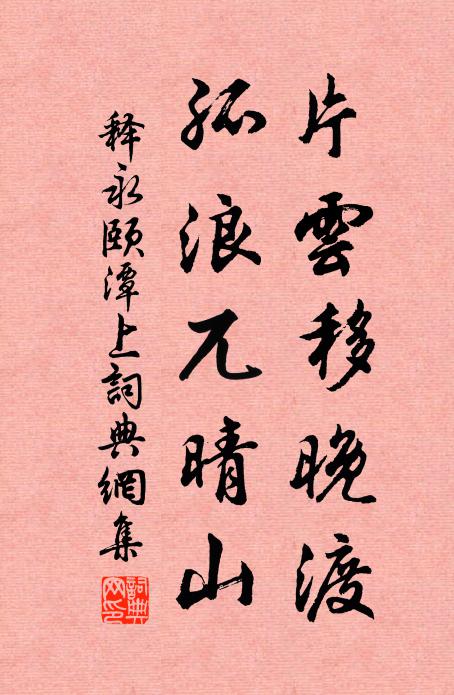 片雲移晚渡
孤浪兀晴山
释永颐潭上詞典網集
詞典网印